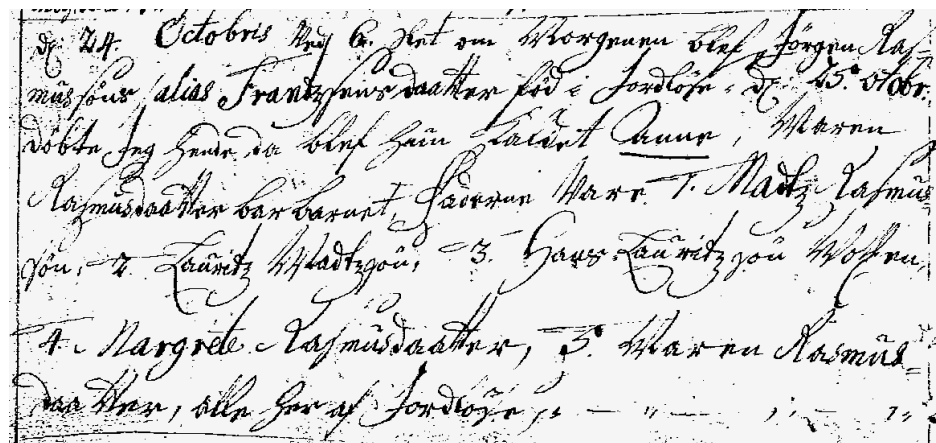 d. 24. Octobris ved 6. slet om Morgenen blef Jörgen Ras=
mussöns alias Frantzsens daatter föd i Jordlöse, d. 25. Octobr.
döbte jeg hende, da blef hun kaldet Anne, Maren
Rasmusdaatter bar barnet, Faderne vare 1. Madtz Rasmus=
sön, 2. Lauritz Madtzsön, 3. Hans Lauritzsön
4. Margrete Rasmusdaatter, 5. Maren Rasmus=
daatter, alle her af Jordlöse,